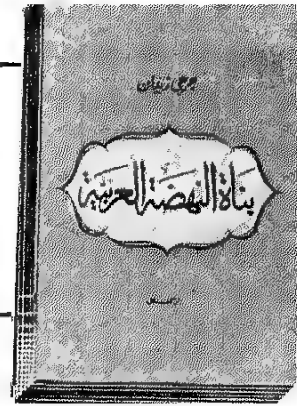 جرجي زيدان
بناة النهضة العربية